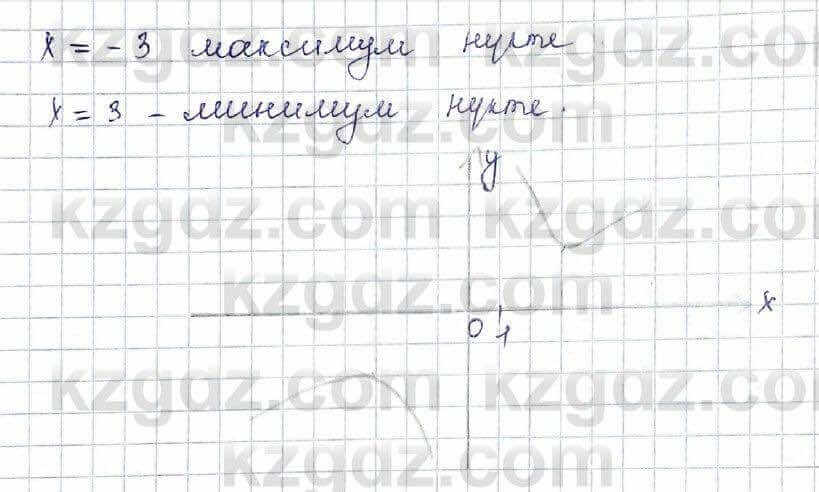 x = - 3 максимум нүкте
x = 3 - минимум нүкте.
kzgdz.com
y
kzgdz.com kzgdz.com
kzgdz.com
x
0 1
kzgdz.com kzgdz.com
kzgdz.com